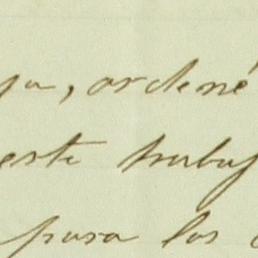 ya, ordené
este trabaj
para los